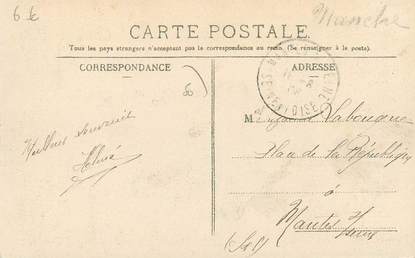 6 €
Manche
CARTE POSTALE
Tous les pays étrangers n'acceptent pas la correspondance au recto. (Se renseigner à la poste).
CORRESPONDANCE
ADRESSE
SEINE-ET-OISE
Meilleur souvenir
M
Place de la République
à
Mantes